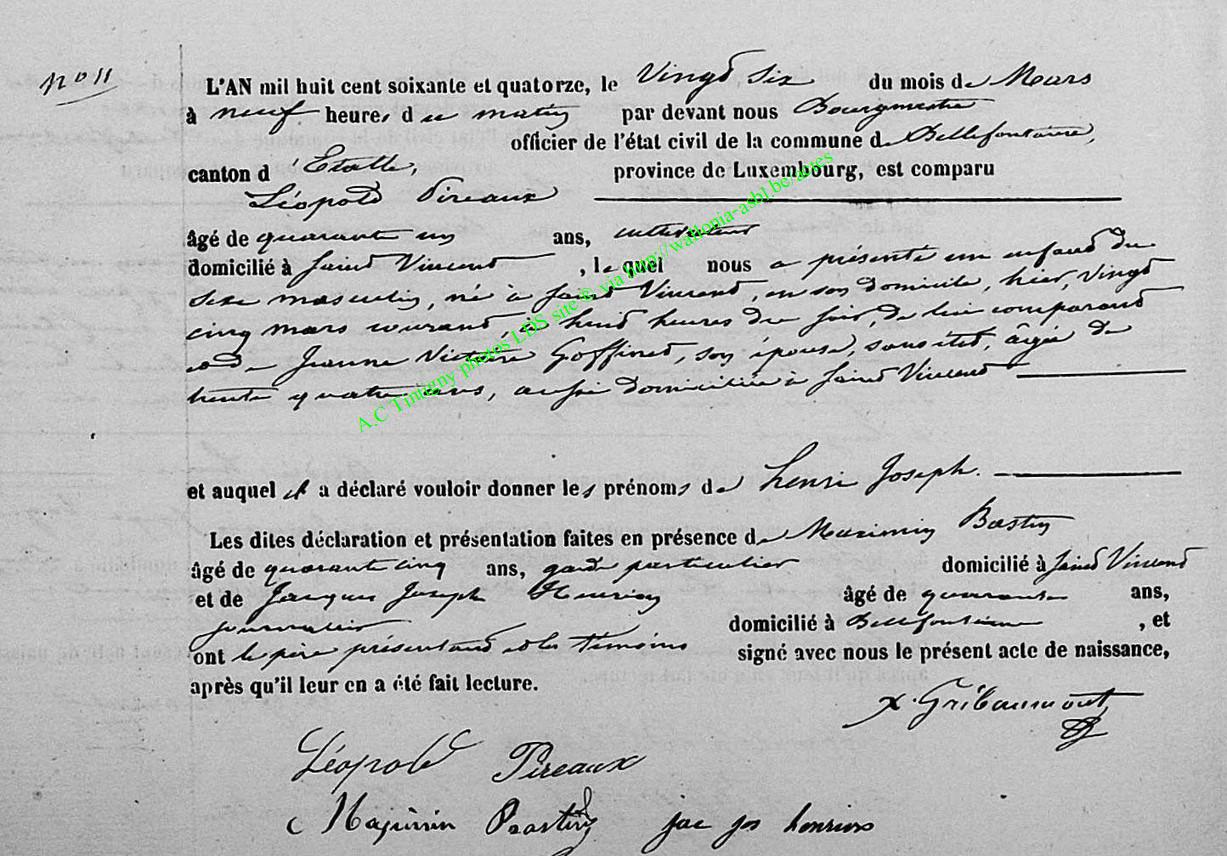 N° 11
L'AN mil huit cent soixante et quatorze, le Vingt six du mois de Mars
à neuf heures du matin par devant nous Bourgmestre
officier de l'état civil de la commune de Bellefontaine,
canton d'Etalle, province de Luxembourg, est comparu
Léopold Pireaux
âgé de quarante un ans,
domicilié à Saint Vincent, lequel nous a présenté un enfant du
sexe masculin, né à Saint Vincent, en son domicile, hier, Vingt
cinq mars courant, à huit heures du soir, de lui comparant
et de Jeanne Victoire Goffinet, son épouse, sans état, âgée de
trente quatre ans, aussi domiciliée à Saint Vincent
et auquel il a déclaré vouloir donner les prénoms de Henri Joseph.
Les dites déclaration et présentation faites en présence de Maximin Bastin
âgé de quarante cinq ans, garde particulier domicilié à Saint Vincent
et de Jacques Joseph Henrion âgé de quarante ans,
journalier domicilié à Bellefontaine, et
ont le père présentant et les témoins signé avec nous le présent acte de naissance,
après qu'il leur en a été fait lecture.
x. Gribaumont
Léopold Pireaux
Maximin Bastin jac jos henrion
A.C Tintigny photos LDS site © via http://wallonia-asbl.be/actes